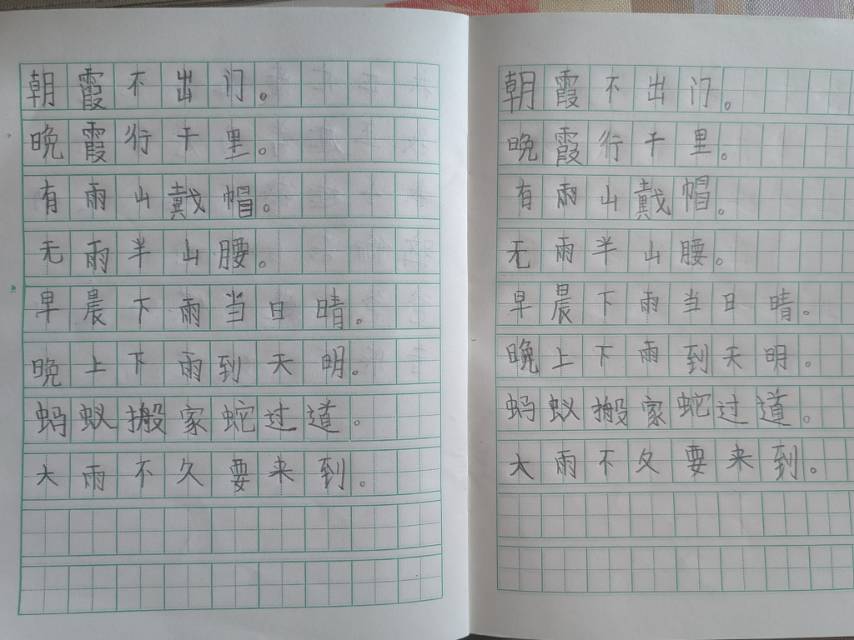 朝霞不出门。
晚霞行千里。
有雨山戴帽。
无雨半山腰。
早晨下雨当日晴。
晚上下雨到天明。
蚂蚁搬家蛇过道。
大雨不久要来到。
朝霞不出门。
晚霞行千里。
有雨山戴帽。
无雨半山腰。
早晨下雨当日晴。
晚上下雨到天明。
蚂蚁搬家蛇过道。
大雨不久要来到。